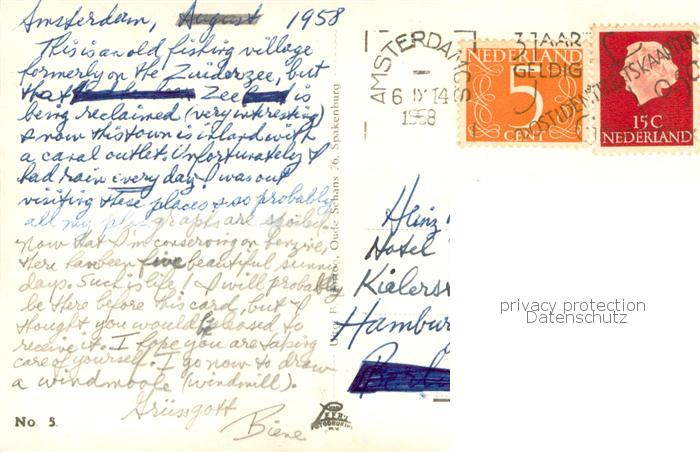 Amsterdam, August 1958
This is an old fishing village
formerly on the Zuiderzee, but
that Zee is
being reclaimed (very interesting)
& now this town is inland with
a canal outlet. Unfortunately I
had rain every day I was out
visiting these places & so probably
all my photographs are spoiled.
Now that I'm conserving on
there has been five beautiful sunny
days. Such is life! I will probably
be there before this card, but I
thought you would be pleased to
receive it. I hope you are taking
care of yourself. I go now to draw
a windmoole (windmill).
Grüssgott
Biene
No. 5.
Oude Schans 76, Spakenburg
AMSTERDAM CS
6 IX 14
1958
3 JAAR
GELDIG
NEDERLAND
5
CENT
15 C
NEDERLAND
Heinz
Hotel
Kielerst
Hamburg
Berlin
privacy protection
Datenschutz